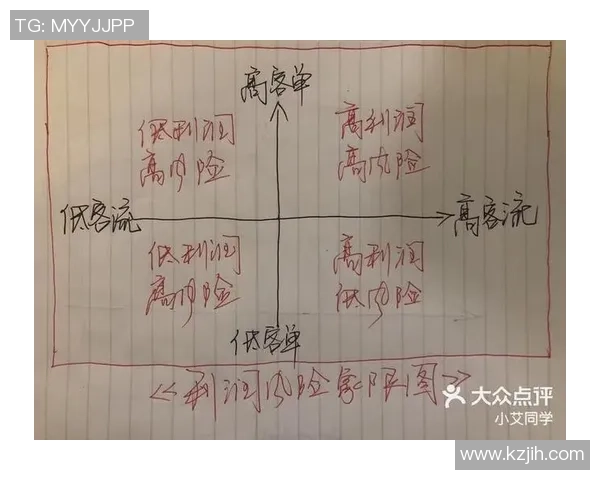 TG: MYYJJPP
高客单
低利润
高风险
高利润
高风险
低客流
高客流
低利润
高风险
高利润
低风险
低客单
<<利润风险象限图>>
大众点评
小艾同学
www.kzjih.com